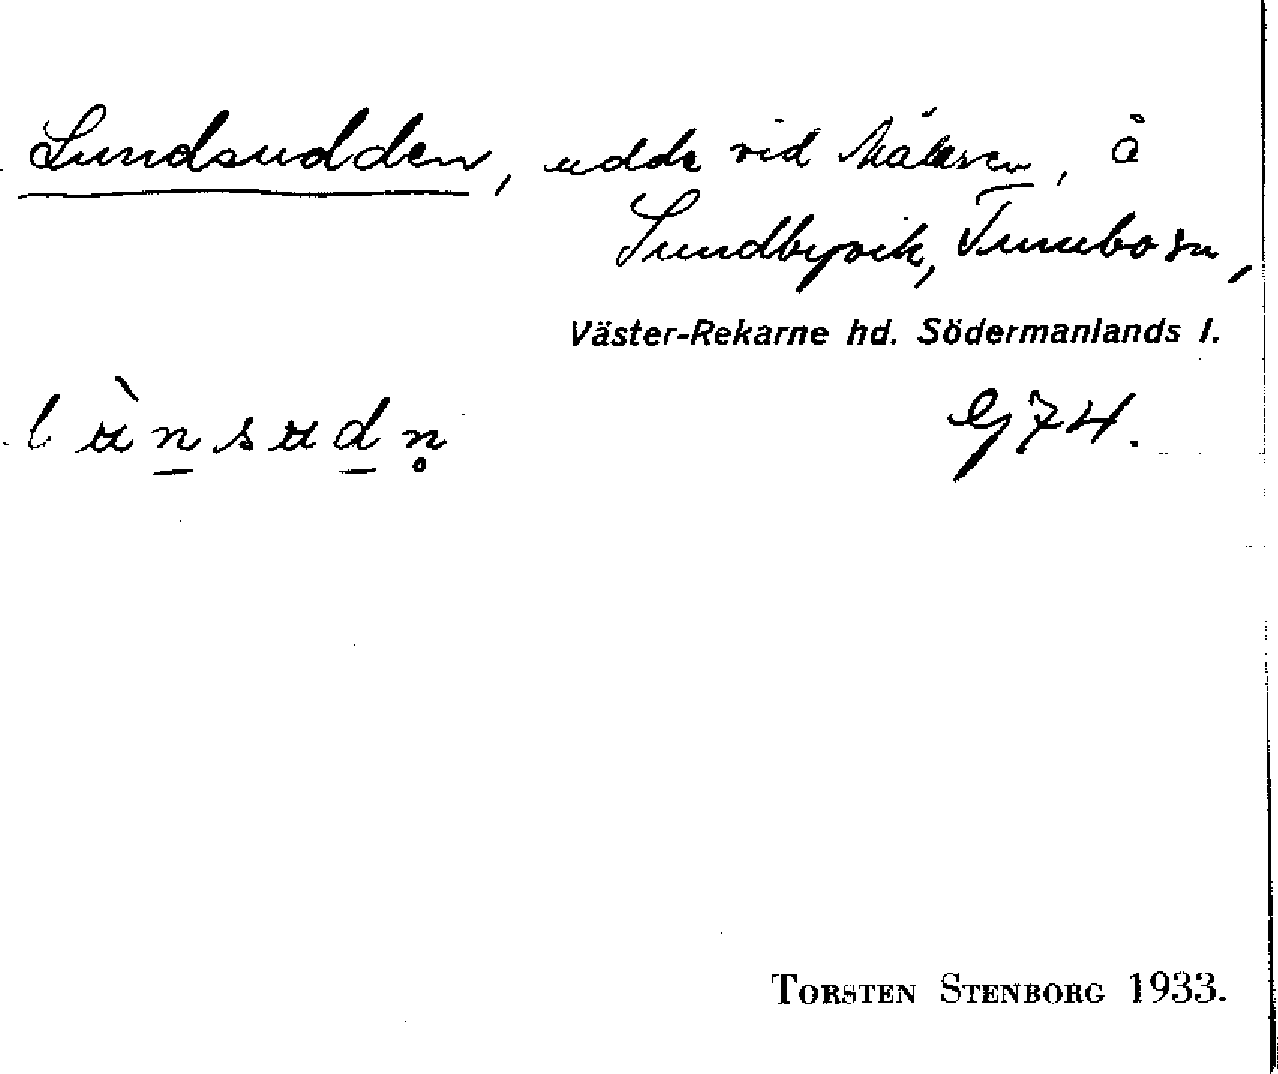 Lundsudden, udde vid Mälaren, å
Sundbyvik, Tumbo sn,
Väster-Rekarne hd. Södermanlands l.
G 74.
TORSTEN STENBORG 1933.